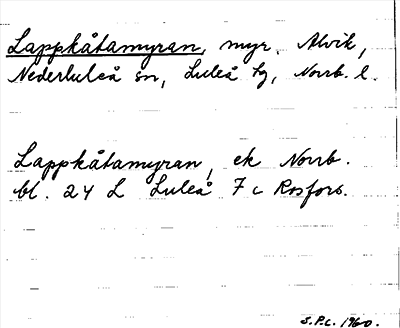 Lappkåtamyran, myr. Alvik,
Nederluleå sn, Luleå tg, Norrb. l.
Lappkåtamyran, ek Norrb.
bl. 24 L Luleå 7c Rosfors.
S.P.L. 1960.